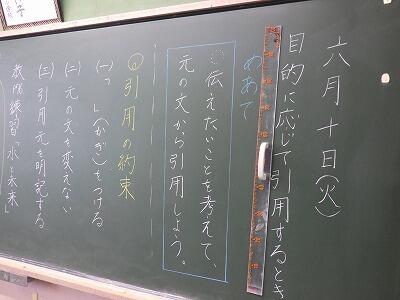 六月十日(火)
目的に応じて引用するとき
めあて
伝えたいことを考えて、
元の文から引用しよう。
引用の約束
(一)「」(かぎ)をつける
(二)元の文を変えない
(三)引用元を明記する
教防練習「水と未来」